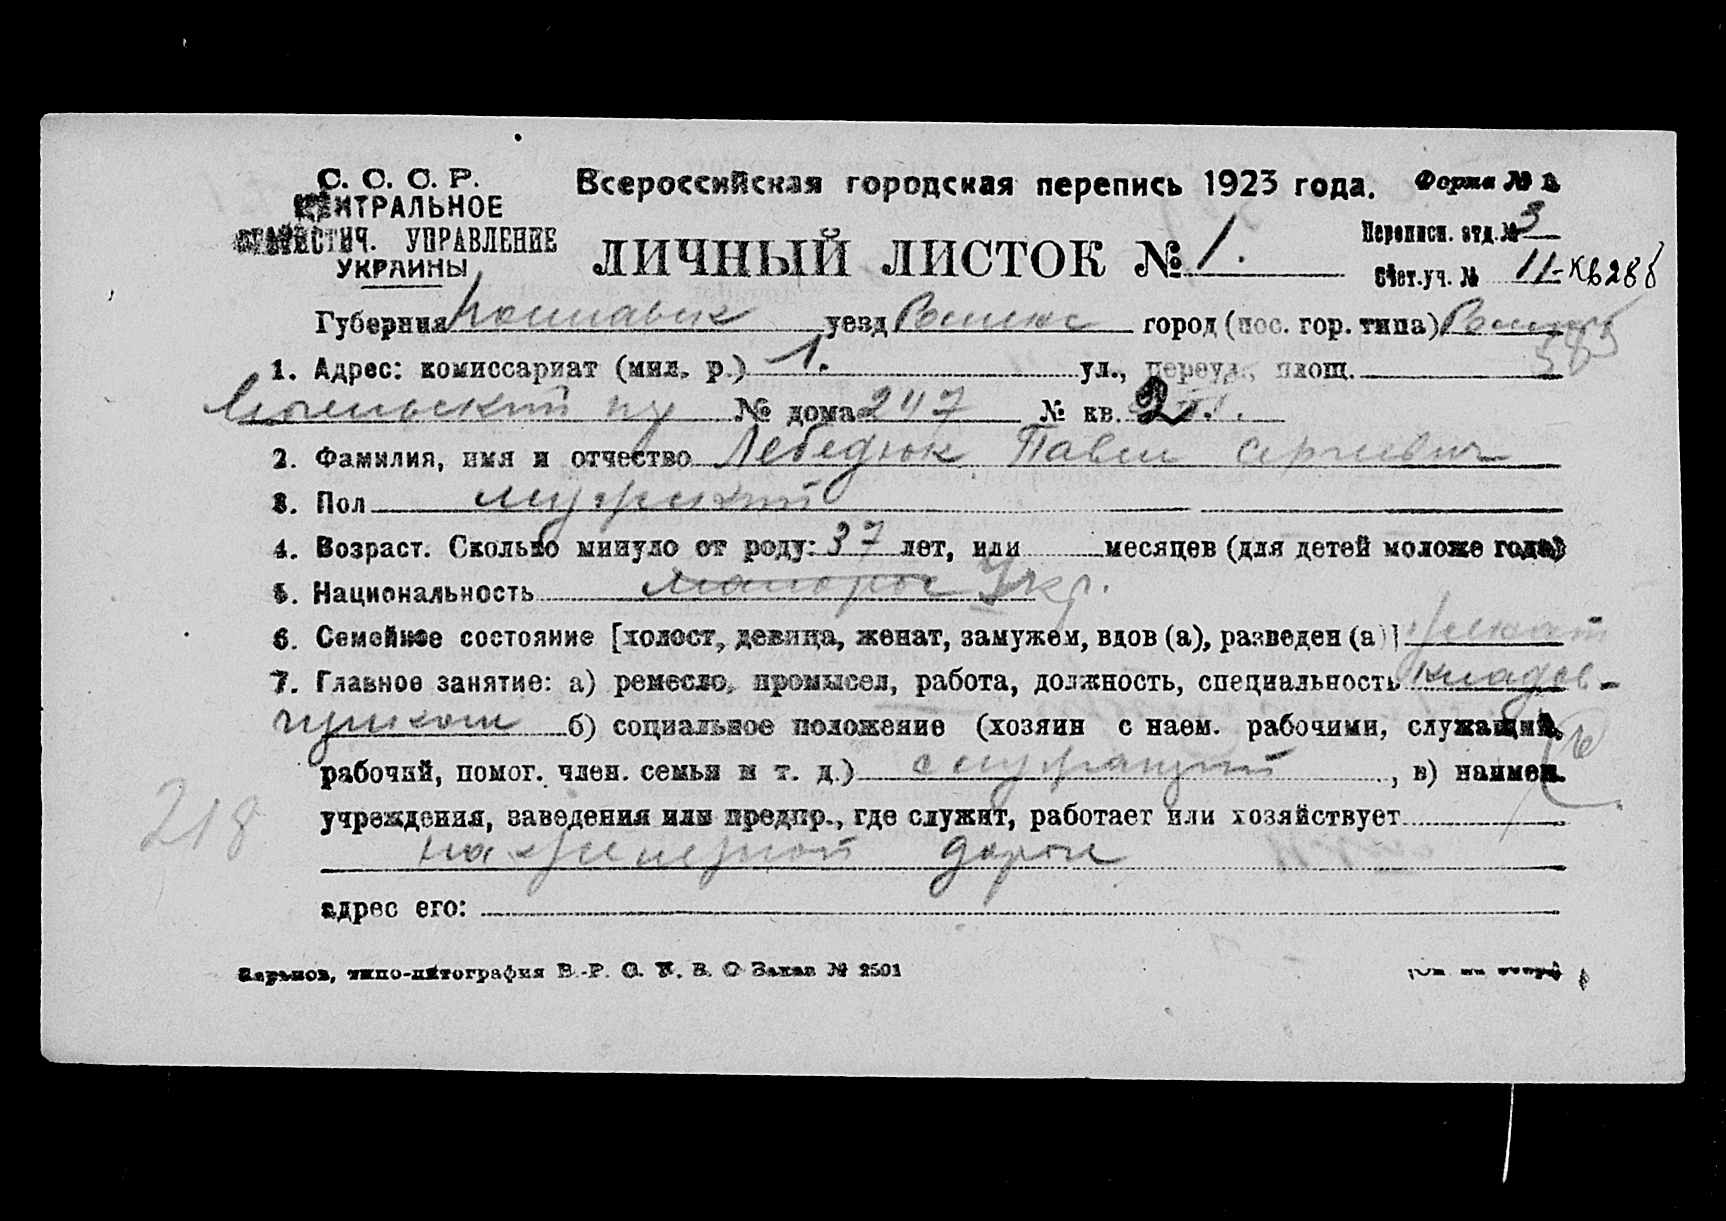 С. С. С. Р.
ЦЕНТРАЛЬНОЕ
СТАТИСТИЧ. УПРАВЛЕНИЕ
УКРАИНЫ
Всероссийская городская перепись 1923 года.
Форма №
ЛИЧНЫЙ ЛИСТОК № 1.
Переписн. отд. № 3
Счет. уч. № 11-кв 28б
Губерния уезд город (пос. гор. типа)
585
1. Адрес: комиссариат (мил. р.) 1. ул., переул., площ.
№ дома 247 № кв. 2
2. Фамилия, имя и отчество Лебедюк Павел Сергиевич
3. Пол мужский
4. Возраст. Сколько минуло от роду: 37 лет, или месяцев (для детей моложе года)
5. Национальность малорос Укр.
6. Семейное состояние [холост, девица, женат, замужем, вдов (а), разведен (а)] женат
7. Главное занятие: а) ремесло, промысел, работа, должность, специальность кладов-
щиком б) социальное положение (хозяин с наем. рабочими, служащий,
рабочий, помог. член. семьи и т. д.) служащий, в) наимен.
учреждения, заведения или предпр., где служит, работает или хозяйствует
218
на дороги
адрес его:
Харьков, типо-литография В.-Р. С. К. В. О Заказ № 2501